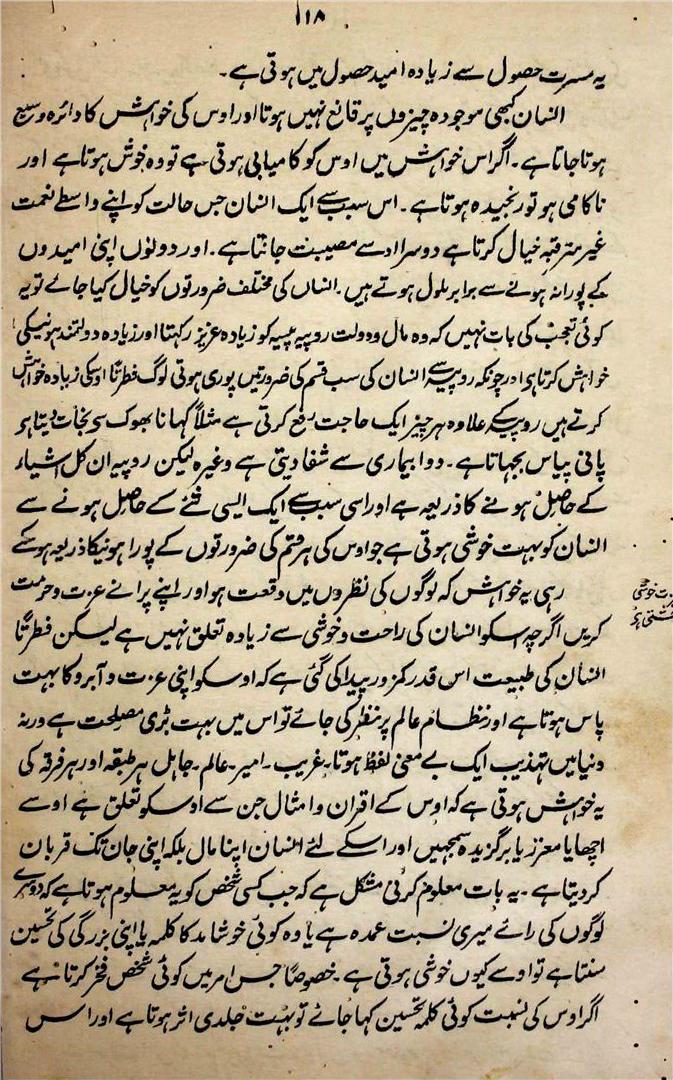 ۱۱۸
یہ مسرت حصول سے زیادہ امید حصول میں ہوتی ہے۔
انسان کبھی موجودہ چیزوں پر قانع نہیں ہوتا اور اوس کی خواہش کا دائرہ وسیع
ہوتا جاتا ہے۔ اگر اس خواہش میں اوس کو کامیابی ہوتی ہے تو وہ خوش ہوتا ہے اور
ناکامی ہو تو رنجیدہ ہوتا ہے۔ اس سبب سے ایک انسان جس حالت کو اپنے واسطے نعمت
غیر مترقبہ خیال کرتا ہے دوسرا اوسے مصیبت جانتا ہے۔ اور دونوں اپنی امیدوں
کے پورا نہ ہونے سے برابر ملول ہوتے ہیں۔ انساں کی مختلف ضرورتوں کو خیال کیا جائے تو یہ
کوئی تعجب کی بات نہیں کہ وہ مال و دولت روپیہ پیسہ کو زیادہ عزیز رکھتا اور زیادہ دولتمند ہونیکی
خواہش کرتا ہی اور چونکہ روپیہ سے انسان کی سب قسم کی ضرورتیں پوری ہوتی لوگ فطرتاً اوسکی زیادہ خواہش
کرتے ہیں روپیہ کے علاوہ ہر چیز ایک حاجت رفع کرتی ہے مثلاً کہانا بھوک سی نجات دیتا ہی
پانی پیاس بجہاتا ہے۔ دوا بیماری سے شفا دیتی ہے وغیرہ لیکن روپیہ ان کل اشیاء
کے حاصل ہونے کا ذریعہ ہے اور اسی سبب سے ایک ایسی شئے کے حاصل ہونے سے
انسان کو بہت خوشی ہوتی ہے جو اوس کی ہر قسم کی ضرورتوں کے پورا ہونیکا ذریعہ ہوسکے
رہی یہ خواہش کہ لوگوں کی نظروں میں وقعت ہو اور اپنے پرانے عزت و حرمت
کریں اگرچہ اسکو انسان کی راحت و خوشی سے زیادہ تعلق نہیں ہے لیکن فطرتاً
انسان کی طبیعت اس قدر کمزور پیدا کی گئی ہے کہ اوسکو اپنی عزت و آبرو کا بہت
پاس ہوتا ہے اور نظام عالم پر نظر کی جائے تو اس میں بہت بڑی مصلحت ہے ورنہ
دنیا میں تہذیب ایک بے معنی لفظ ہوتا۔ غریب۔ امیر۔ عالم۔ جاہل ہر طبقہ اور ہر فرقہ کی
یہ خواہش ہوتی ہے کہ اوس کے اقران و امثال جن سے اوسکو تعلق ہے اوسے
اچھا یا معزز یا برگزیدہ سمجہیں اور اسکے لئے انسان اپنا مال بلکہ اپنی جان تک قربان
کر دیتا ہے۔ یہ بات معلوم کرنی مشکل ہے کہ جب کسی شخص کو یہ معلوم ہوتا ہے کہ دوسرے
لوگوں کی رائے میری نسبت عمدہ ہے یا وہ کوئی خوشامد کا کلمہ یا اپنی بزرگی کی تحسین
سنتا ہے تو اوسے کیوں خوشی ہوتی ہے۔ خصوصاً جس امر میں کوئی شخص فخر کرتا ہے
اگر اوس کی نسبت کوئی کلمہ تحسین کہا جائے تو بہت جلدی اثر ہوتا ہے اور اس